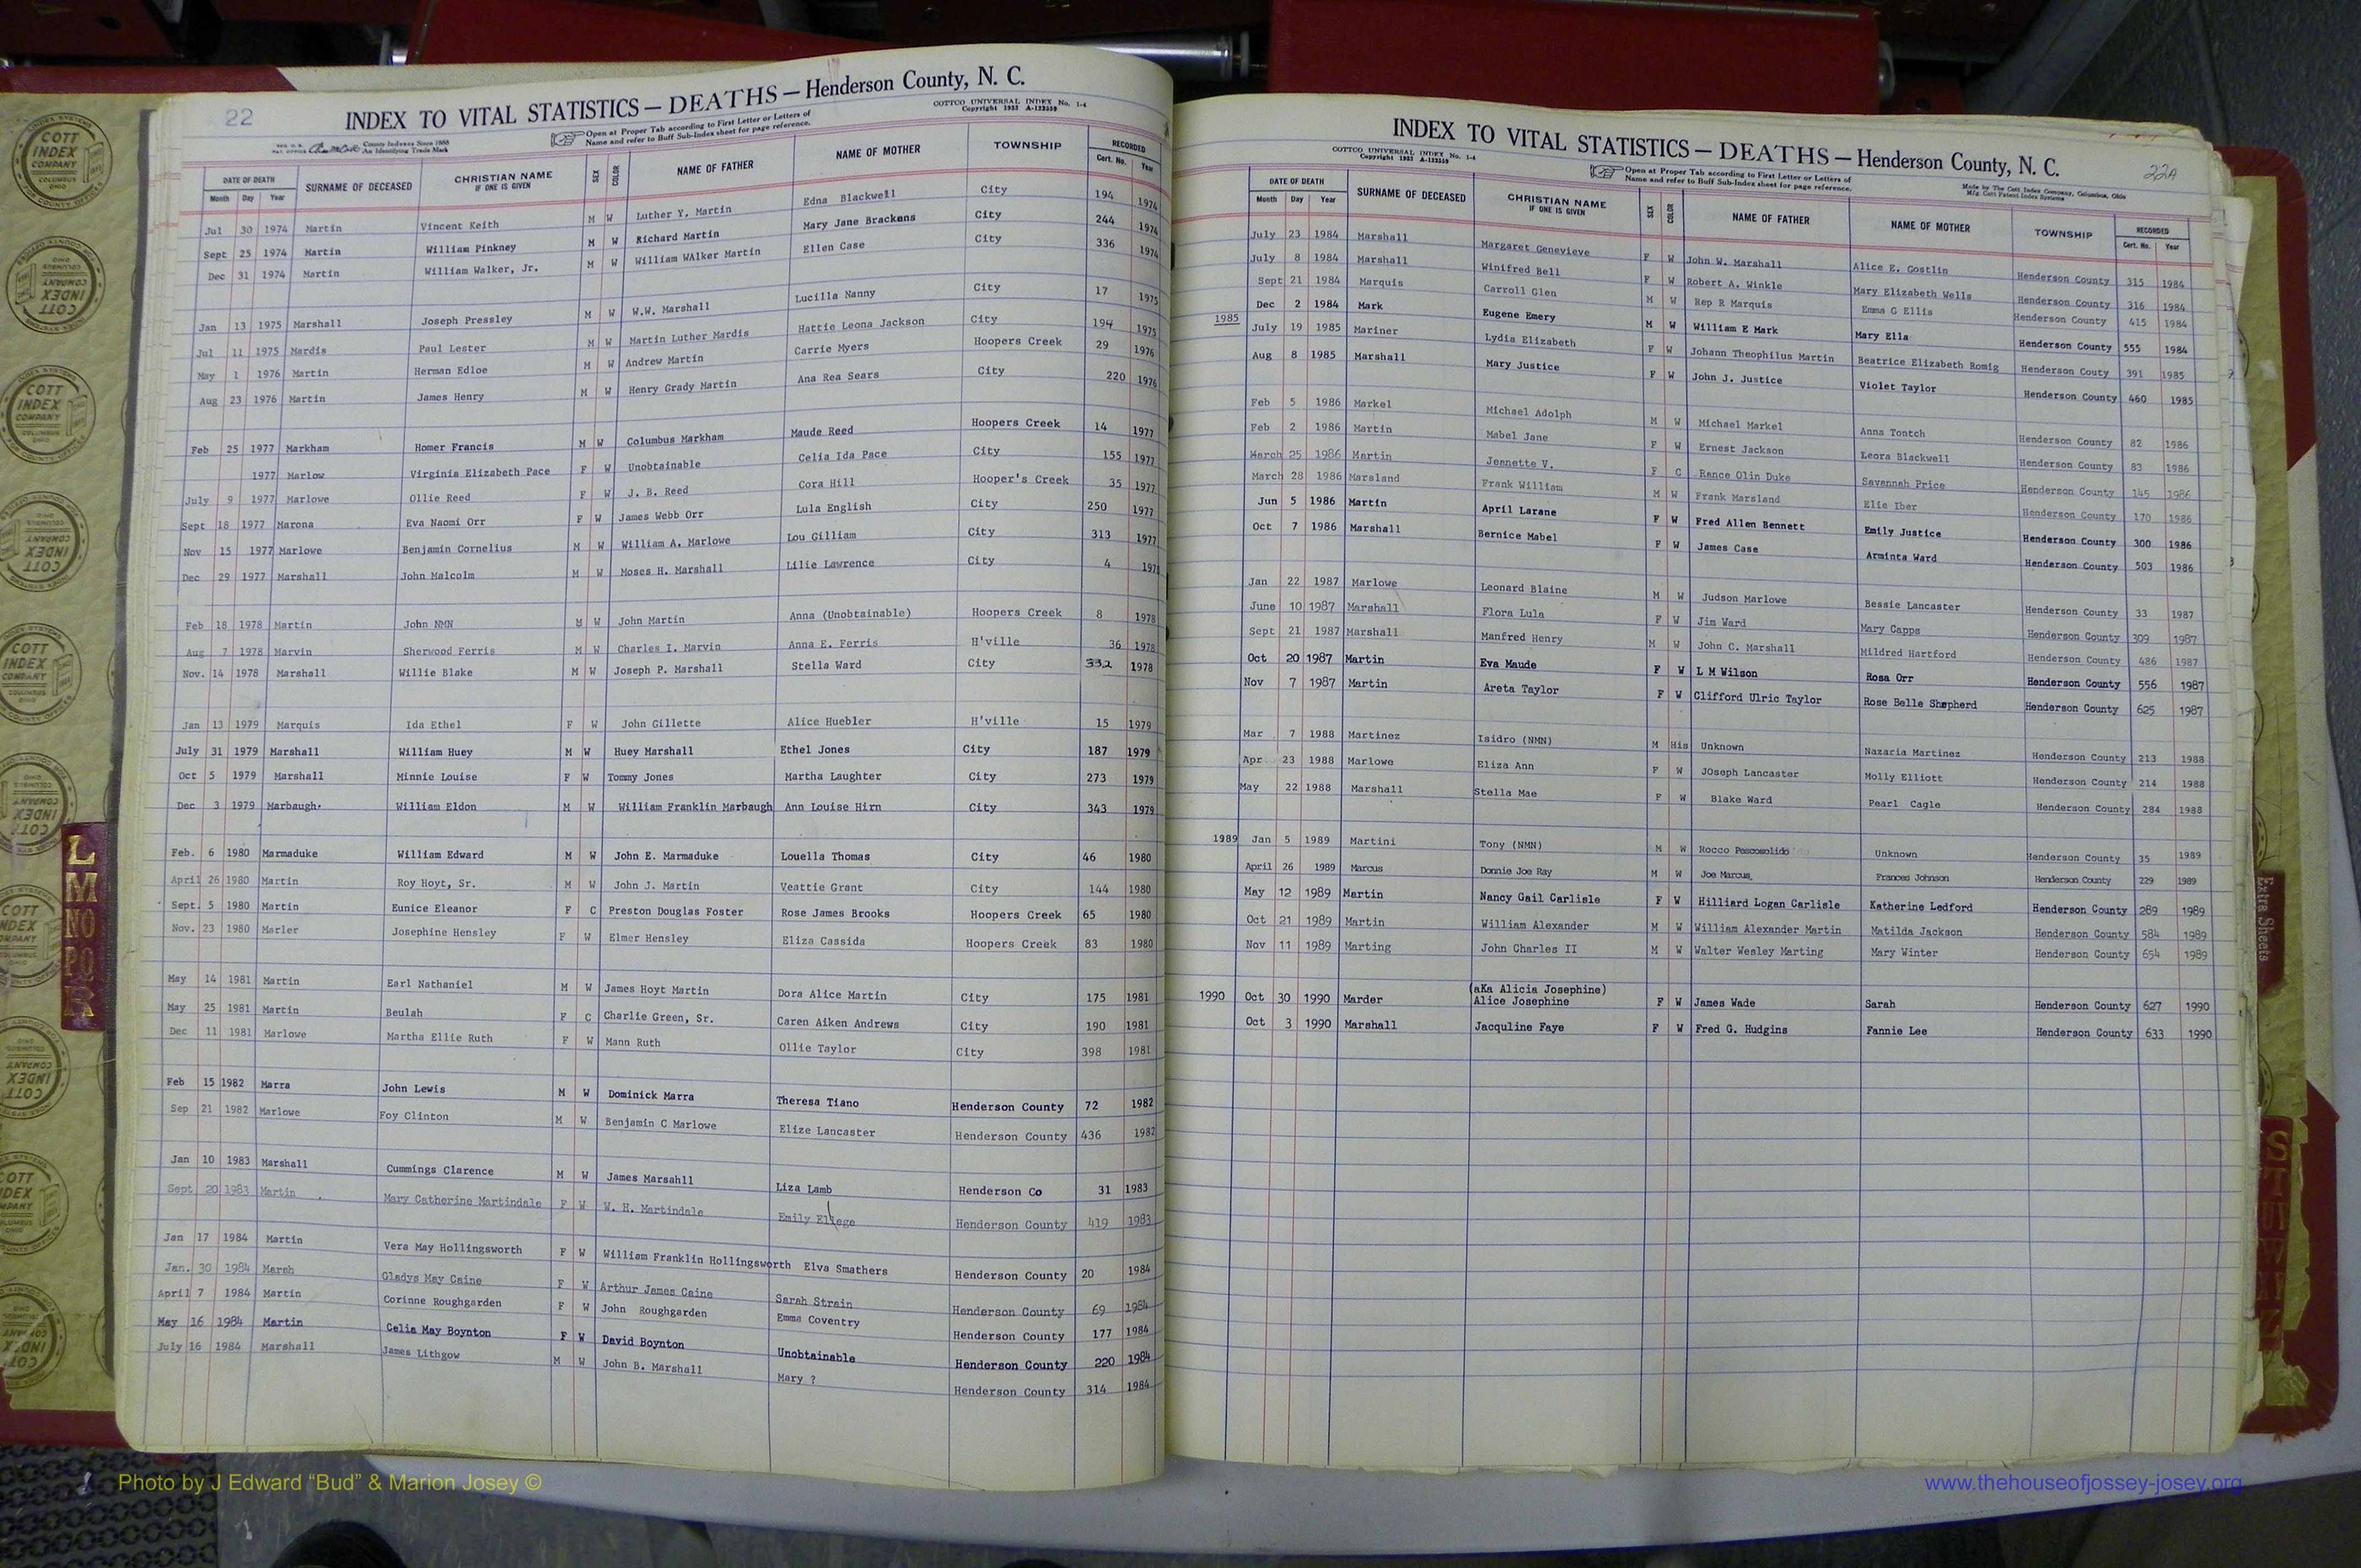 22
INDEX TO VITAL STATISTICS — DEATHS — Henderson County, N. C.
COTTCO UNIVERSAL INDEX No. 1-4
Copyright 1933 A-122559
County Indexes Since 1888
An Identifying Trade Mark
Open at Proper Tab according to First Letter or Letters of
Name and refer to Buff Sub-Index sheet for page reference.
DATE OF DEATH SURNAME OF DECEASED CHRISTIAN NAME IF ONE IS GIVEN SEX COLOR NAME OF FATHER NAME OF MOTHER TOWNSHIP RECORDED
Month Day Year Cert. No. Year
Jul 30 1974 Martin Vincent Keith M W Luther Y. Martin Edna Blackwell City 194 1974
Sept 25 1974 Martin William Pinkney M W Richard Martin Mary Jane Brackens City 244 1974
Dec 31 1974 Martin William Walker, Jr. M W William WAlker Martin Ellen Case City 336 1974
Jan 13 1975 Marshall Joseph Pressley M W W.W. Marshall Lucilla Nanny City 17 1975
Jul 11 1975 Mardis Paul Lester M W Martin Luther Mardis Hattie Leona Jackson City 194 1975
May 1 1976 Martin Herman Edloe M W Andrew Martin Carrie Myers Hoopers Creek 29 1976
Aug 23 1976 Martin James Henry M W Henry Grady Martin Ana Rea Sears City 220 1976
Feb 25 1977 Markham Homer Francis M W Columbus Markham Maude Reed Hoopers Creek 14 1977
1977 Marlow Virginia Elizabeth Pace F W Unobtainable Celia Ida Pace City 155 1977
July 9 1977 Marlowe Ollie Reed F W J. B. Reed Cora Hill Hooper's Creek 35 1977
Sept 18 1977 Marona Eva Naomi Orr F W James Webb Orr Lula English City 250 1977
Nov 15 1977 Marlowe Benjamin Cornelius M W William A. Marlowe Lou Gilliam City 313 1977
Dec 29 1977 Marshall John Malcolm M W Moses H. Marshall Lilie Lawrence City 4 1978
Feb 18 1978 Martin John NMN M W John Martin Anna (Unobtainable) Hoopers Creek 8 1978
Aug 7 1978 Marvin Sherwood Ferris M W Charles I. Marvin Anna E. Ferris H'ville 36 1978
Nov. 14 1978 Marshall Willie Blake M W Joseph P. Marshall Stella Ward City 332 1978
Jan 13 1979 Marquis Ida Ethel F W John Gillette Alice Huebler H'ville 15 1979
July 31 1979 Marshall William Huey M W Huey Marshall Ethel Jones City 187 1979
Oct 5 1979 Marshall Minnie Louise F W Tommy Jones Martha Laughter City 273 1979
Dec 3 1979 Marbaugh William Eldon M W William Franklin Marbaugh Ann Louise Hirn City 343 1979
Feb. 6 1980 Marmaduke William Edward M W John E. Marmaduke Louella Thomas City 46 1980
April 26 1980 Martin Roy Hoyt, Sr. M W John J. Martin Veattie Grant City 144 1980
Sept. 5 1980 Martin Eunice Eleanor F C Preston Douglas Foster Rose James Brooks Hoopers Creek 65 1980
Nov. 23 1980 Marler Josephine Hensley F W Elmer Hensley Eliza Cassida Hoopers Creek 83 1980
May 14 1981 Martin Earl Nathaniel M W James Hoyt Martin Dora Alice Martin City 175 1981
May 25 1981 Martin Beulah F C Charlie Green, Sr. Caren Aiken Andrews City 190 1981
Dec 11 1981 Marlowe Martha Ellie Ruth F W Mann Ruth Ollie Taylor City 398 1981
Feb 15 1982 Marra John Lewis M W Dominick Marra Theresa Tiano Henderson County 72 1982
Sep 21 1982 Marlowe Foy Clinton M W Benjamin C Marlowe Elize Lancaster Henderson County 436 1982
Jan 10 1983 Marshall Cummings Clarence M W James Marsahll Liza Lamb Henderson Co 31 1983
Sept 20 1983 Martin Mary Catherine Martindale F W W. H. Martindale Emily Henderson County 419 1983
Jan 17 1984 Martin Vera May Hollingsworth F W William Franklin Hollingsworth Elva Smathers Henderson County 20 1984
Jan. 30 1984 Marsh Gladys May Caine F W Arthur James Caine Sarah Strain Henderson County 69 1984
April 7 1984 Martin Corinne Roughgarden F W John Roughgarden Emma Coventry Henderson County 177 1984
May 16 1984 Martin Celia May Boynton F W David Boynton Unobtainable Henderson County 220 1984
July 16 1984 Marshall James Lithgow M W John B. Marshall Mary ? Henderson County 314 1984
INDEX TO VITAL STATISTICS — DEATHS — Henderson County, N. C.
22A
COTTCO UNIVERSAL INDEX No. 1-4
Copyright 1933 A-122559
Open at Proper Tab according to First Letter or Letters of
Name and refer to Buff Sub-Index sheet for page reference.
Made by The Cott Index Company, Columbus, Ohio
Mfg. Cott Patent Index Systems
DATE OF DEATH SURNAME OF DECEASED CHRISTIAN NAME IF ONE IS GIVEN SEX COLOR NAME OF FATHER NAME OF MOTHER TOWNSHIP RECORDED
Month Day Year Cert. No. Year
July 23 1984 Marshall Margaret Genevieve F W John W. Marshall Alice E. Gostlin Henderson County 315 1984
July 8 1984 Marshall Winifred Bell F W Robert A. Winkle Mary Elizabeth Wells Henderson County 316 1984
Sept 21 1984 Marquis Carroll Glen M W Rep R Marquis Emma G Ellis Henderson County 415 1984
Dec 2 1984 Mark Eugene Emery M W William E Mark Mary Ella Henderson County 555 1984
1985 July 19 1985 Mariner Lydia Elizabeth F W Johann Theophilus Martin Beatrice Elizabeth Romig Henderson Couty 391 1985
Aug 8 1985 Marshall Mary Justice F W John J. Justice Violet Taylor Henderson County 460 1985
Feb 5 1986 Markel Michael Adolph M W Michael Markel Anna Tontch Henderson County 82 1986
Feb 2 1986 Martin Mabel Jane F W Ernest Jackson Leora Blackwell Henderson County 83 1986
March 25 1986 Martin Jennette V. F C Rance Olin Duke Savannah Price Henderson County 145 1986
March 28 1986 Marsland Frank William M W Frank Marsland Elie Iber Henderson County 170 1986
Jun 5 1986 Martin April Larane F W Fred Allen Bennett Emily Justice Henderson County 300 1986
Oct 7 1986 Marshall Bernice Mabel F W James Case Arminta Ward Henderson County 503 1986
Jan 22 1987 Marlowe Leonard Blaine M W Judson Marlowe Bessie Lancaster Henderson County 33 1987
June 10 1987 Marshall Flora Lula F W Jim Ward Mary Capps Henderson County 309 1987
Sept 21 1987 Marshall Manfred Henry M W John C. Marshall Mildred Hartford Henderson County 486 1987
Oct 20 1987 Martin Eva Maude F W L M Wilson Rosa Orr Henderson County 556 1987
Nov 7 1987 Martin Areta Taylor F W Clifford Ulric Taylor Rose Belle Shepherd Henderson County 625 1987
Mar 7 1988 Martinez Isidro (NMN) M His Unknown Nazaria Martinez Henderson County 213 1988
Apr 23 1988 Marlowe Eliza Ann F W JOseph Lancaster Molly Elliott Henderson County 214 1988
May 22 1988 Marshall Stella Mae F W Blake Ward Pearl Cagle Henderson County 284 1988
1989 Jan 5 1989 Martini Tony (NMN) M W Rocco Pascosolido Unknown Henderson County 35 1989
April 26 1989 Marcus Donnie Joe Ray M W Joe Marcus Frances Johnson Henderson County 229 1989
May 12 1989 Martin Nancy Gail Carlisle F W Hilliard Logan Carlisle Katherine Ledford Henderson County 289 1989
Oct 21 1989 Martin William Alexander M W William Alexander Martin Matilda Jackson Henderson County 584 1989
Nov 11 1989 Marting John Charles II M W Walter Wesley Marting Mary Winter Henderson County 654 1989
(aKa Alicia Josephine)
1990 Oct 30 1990 Marder Alice Josephine F W James Wade Sarah Henderson County 627 1990
Oct 3 1990 Marshall Jacquline Faye F W Fred G. Hudgins Fannie Lee Henderson County 633 1990
COTT INDEX COMPANY COLUMBUS OHIO
L
M
NO
PQ
R
Extra Sheets
S
T
Z
Photo by J Edward “Bud” & Marion Josey ©
www.thehouseofjossey-josey.org